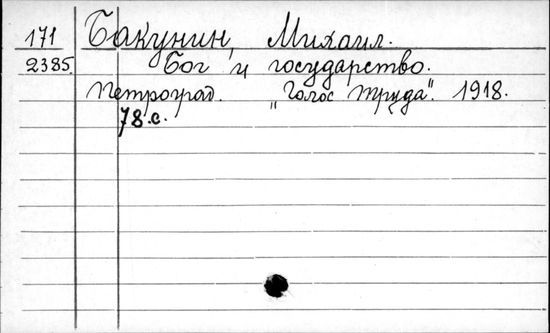 171 Бакунин, Михаил.
2385. Бог и государство.
Петроград. "Голос Труда". 1918.
78 с.